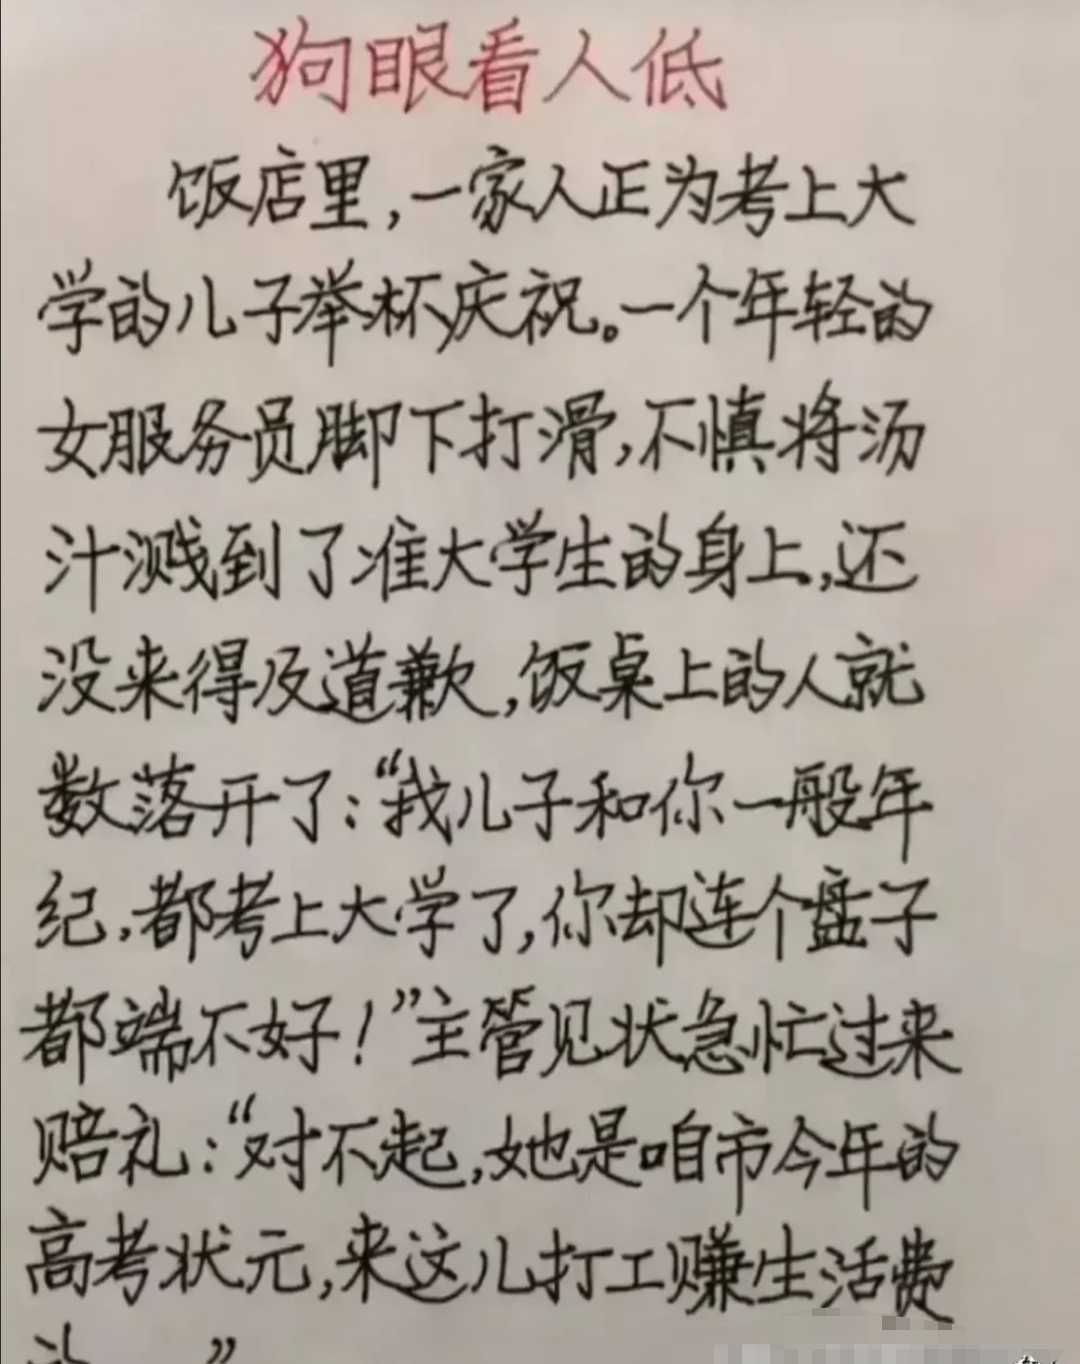 狗眼看人低
饭店里,一家人正为考上大
学的儿子举杯庆祝。一个年轻的
女服务员脚下打滑,不慎将汤
汁溅到了准大学生的身上,还
没来得及道歉,饭桌上的人就
数落开了:“我儿子和你一般年
纪,都考上大学了,你却连个盘子
都端不好!”主管见状急忙过来
赔礼:“对不起,她是咱市今年的
高考状元,来这儿打工赚生活费
”